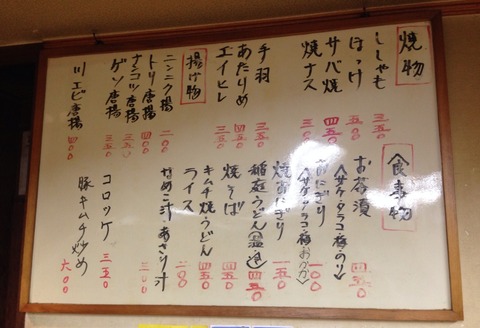 焼物
ししゃも 三五〇
ほっけ 五五〇
サバ焼 四五〇
焼ナス 三〇〇
手羽 三五〇
あたりめ 四五〇
エイヒレ 三五〇
揚げ物
ニンニク揚 二〇〇
トリ唐揚 四〇〇
ナンコツ唐揚 三五〇
ゲソ唐揚 三五〇
川エビ唐揚 四〇〇
食事物
お茶漬 四五〇
(サケ・タラコ・梅・のり)
おにぎり 一〇〇
(サケ・タラコ・梅・おかか)
焼おにぎり 一五〇
稲庭うどん(温・冷) 四五〇
焼そば 四五〇
キムチ焼うどん 四五〇
ライス 二〇〇
なめこ汁・あさり汁 三〇〇
コロッケ 三五〇
豚キムチ炒め 六〇〇